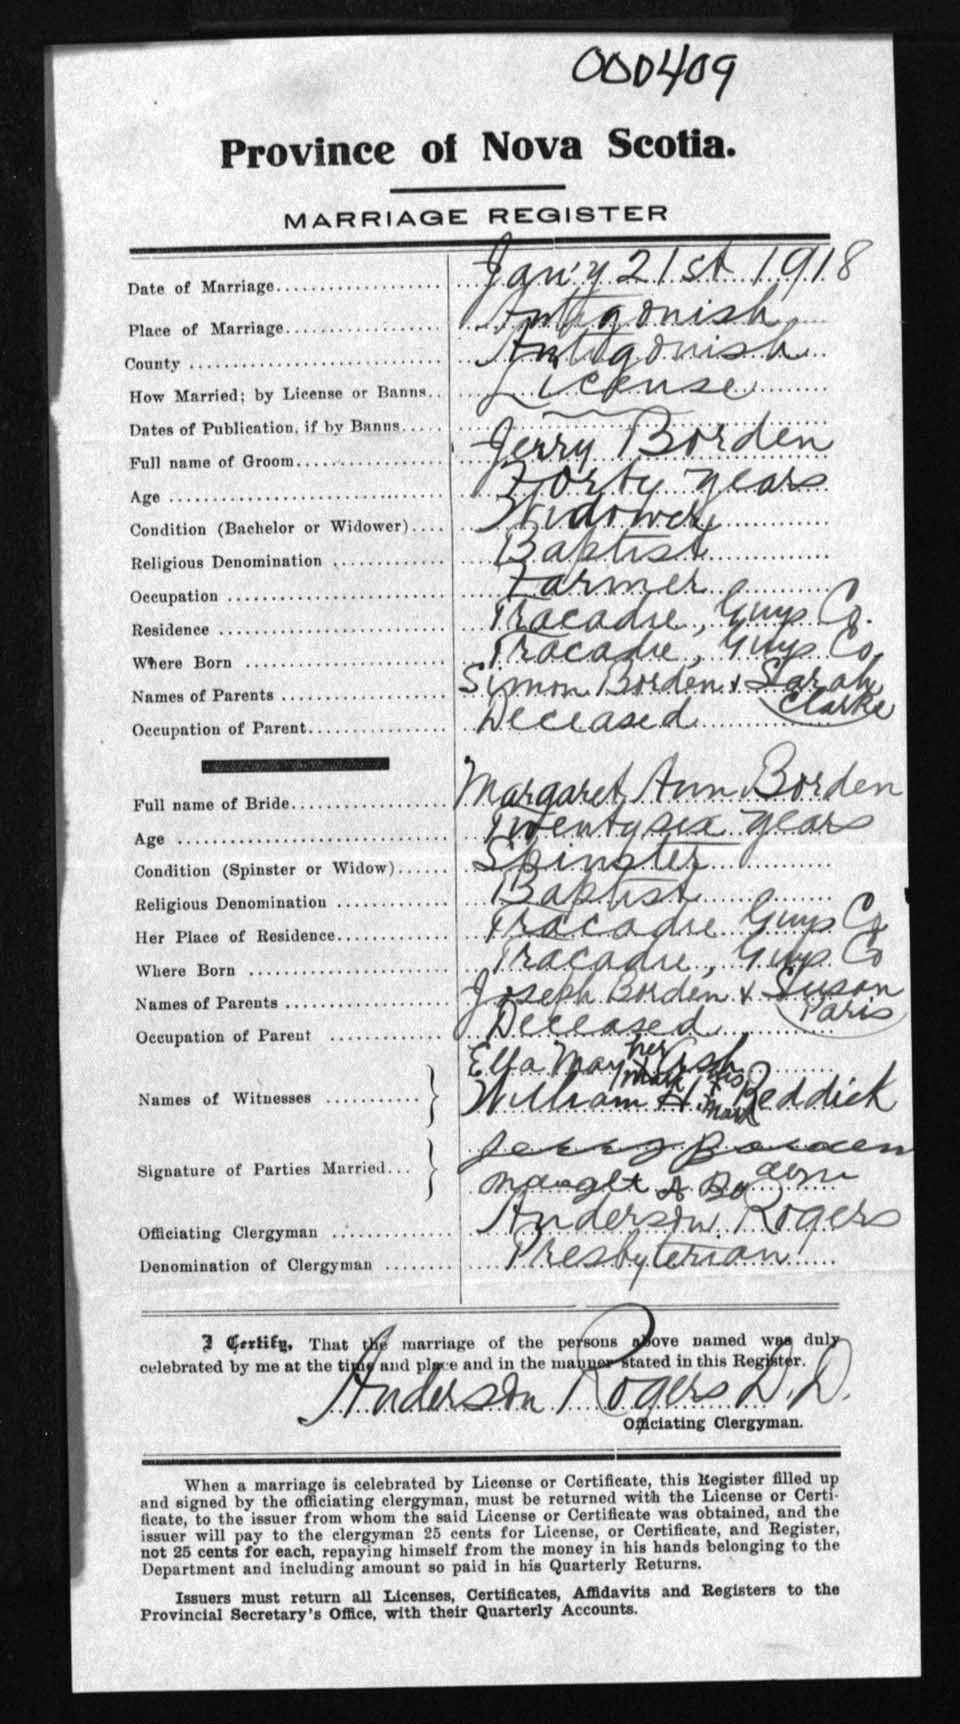 000409
Province of Nova Scotia.
MARRIAGE REGISTER
Date of Marriage Jan'y 21st 1918
Place of Marriage Antigonish
County Antigonish
How Married; by License or Banns License
Dates of Publication, if by Banns
Full name of Groom Jerry Borden
Age Forty years
Condition (Bachelor or Widower) Widower
Religious Denomination Baptist
Occupation Farmer
Residence Tracadie, Guys Co.
Where Born Tracadie, Guys Co.
Names of Parents Simon Borden & Sarah Clarke
Occupation of Parent Deceased
Full name of Bride Margaret Ann Borden
Age Twenty six years
Condition (Spinster or Widow) Spinster
Religious Denomination Baptist
Her Place of Residence Tracadie Guys Co
Where Born Tracadie, Guys Co
Names of Parents Joseph Borden & Susan Paris
Occupation of Parent Deceased
Names of Witnesses Ella May her x mark Ash
William H. his x mark Reddick
Signature of Parties Married Jerry Borden
A
Officiating Clergyman Anderson Rogers
Denomination of Clergyman Presbyterian
I Certify, That the marriage of the persons above named was duly
celebrated by me at the time and place and in the manner stated in this Register.
Anderson Rogers D.D.
Officiating Clergyman.
When a marriage is celebrated by License or Certificate, this Register filled up
and signed by the officiating clergyman, must be returned with the License or Certi-
ficate, to the issuer from whom the said License or Certificate was obtained, and the
issuer will pay to the clergyman 25 cents for License, or Certificate, and Register,
not 25 cents for each, repaying himself from the money in his hands belonging to the
Department and including amount so paid in his Quarterly Returns.
Issuers must return all Licenses, Certificates, Affidavits and Registers to the
Provincial Secretary's Office, with their Quarterly Accounts.